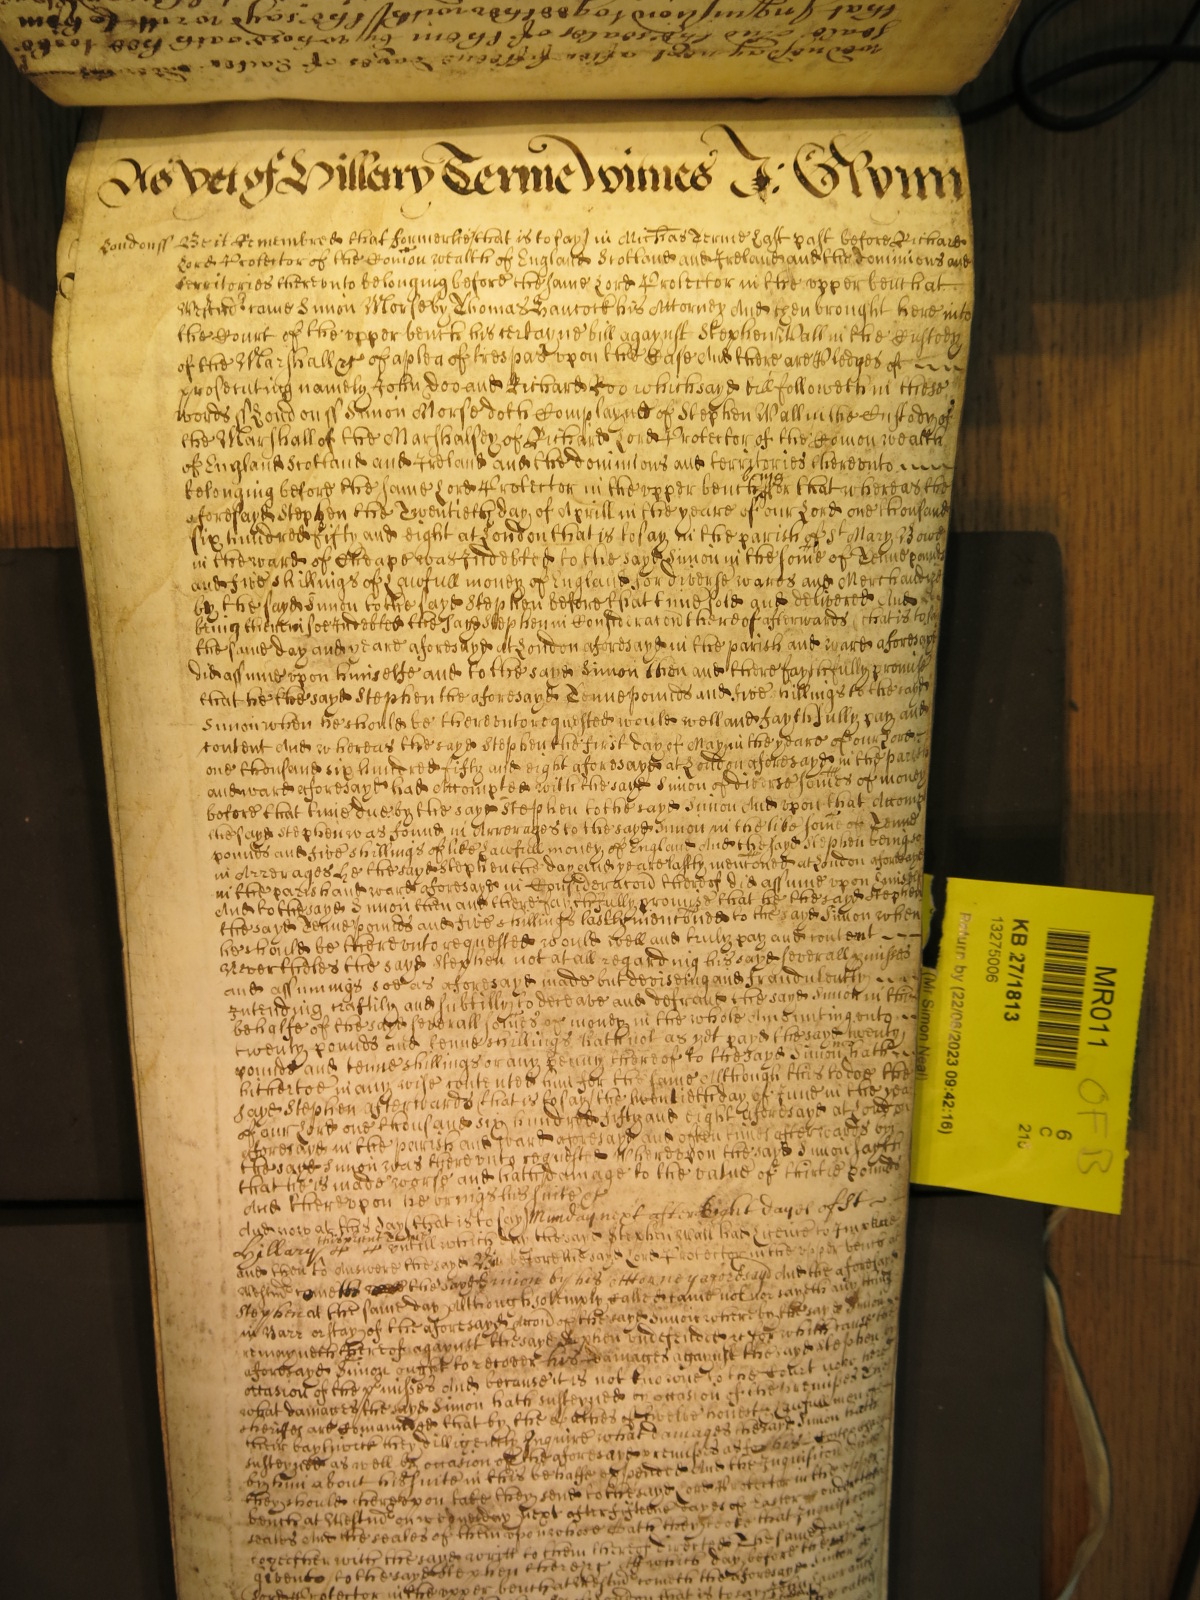 As yet of Hillary Terme witnes J: Glynn
Londonss Be it Remembred that formerlie (that is to say) in Michas Terme Last past before Richard
Lord Protector of the Comon wealth of England Scotland and Ireland and the Dominions and
territories thereunto belonging before the same Lord Protector in the upper bench at
Westmr came Simon Morse by Thomas Hancock his Attorney And then brought here into
the Court of the upper bench his certayne bill against Stephen Wall in the Custody
of the Marshall &c of a plea of trespas upon the Case And there are Pledges of
prosecuting namely John Doo and Richard Roo which sayd bill followeth in these
words ss Londonss Simon Morse doth Complayne of Stephen Wall in the Custody of
the Marshall of the Marshalsey of Richard Lord Protector of the Comon wealth
of England Scotland and Ireland and the dominions and territories thereunto
belonging before the same Lord Protector in the upper bench being for that whereas the
aforesayd Stephen the Twentieth day of Aprill in the yeare of our Lord one thousand
six hundred fifty and eight at London that is to say in the parish of St Mary Bowe
in the ward of Cheape was Indebted to the sayd Simon in the some of Tenne pounds
and five shillings of Lawfull money of England for diverse wares and Merchandizes
by the sayd Simon to the sayd Stephen before that time sold and delivered And
being therein soe Indebted the sayd Stephen in Consideracon thereof afterwards (that is to say
the same day and yeare aforesayd at London aforesayd in the parish and ward aforesayd
did assume upon himselfe and to the sayd Simon then and there faythfully promise
that he the sayd Stephen the aforesayd Tenne pounds and five shillings to the sayd
Simon when he should be thereunto requested would well and faythfully pay and
content And whereas the sayd Stephen the first day of May in the yeare of our Lord
one thousand six hundred fifty and eight aforesayd at London aforesayd in the parish
and ward aforesayd had Accompted with the sayd Simon of diverse somes of money
before that time due by the sayd Stephen to the sayd Simon And upon that Accompt
the sayd Stephen was found in Arrerages to the sayd Simon in the like some of Tenne
pounds and five shillings of like Lawfull money of England And the sayd Stephen being soe
in Arrerages he the sayd Stephen the day and yeare lastly mentoned at London aforesayd
in the parish and ward aforesayd in Consideracon thereof did assume upon himselfe
And to the sayd Simon then and there faythfully promise that he the sayd Stephen
the sayd Tenne pounds and five shillings last mentioned to the sayd Simon when
he should be thereunto requested would well and truly pay and content
Neverthelesse the sayd Stephen not at all regarding his sayd severall promises
and assumings soe as aforesayd made but deviseing and fraudulently
Intending craftily and subtilly to deceave and defraud the sayd Simon in this
behalfe of the sayd severall somes of money in the whole Amounting unto
twenty pounds and tenne shillings hath not as yet payd the sayd twenty
pounds and tenne shillings or any penny thereof to the sayd Simon nor hath
hitherto in any wise contented him for the same Although this to doe the
sayd Stephen afterwards (that is to say) the twentieth day of June in the yeare
of our Lord one thousand six hundred fifty and eight aforesayd at London
aforesayd in the parish and ward aforesayd and often times afterwards by
the sayd Simon was thereunto requested Whereupon the sayd Simon sayth
that he is made worse and hath damage to the value of thirtie pounds
And thereupon he brings his suite &c
And now at this day (that is to say) Munday next after Eight dayes of St
Hillary this present Terme untill which day the sayd Stephen Wall had Licence to Imparle
and then to Answere the sayd Bill before the sayd Lord Protector in the upper bench at
Westmr cometh the sayd Simon by his Attorney aforesayd And the aforesayd
Stephen at the same day Although solempnly called came not nor sayeth any thing
in Barr or stay of the aforesayd Accon of the sayd Simon whereby the sayd Simon
remayneth thereof against the sayd Stephen undefended &c for which cause the
aforesayd Simon ought to recover his damages against the sayd Stephen by
occasion of the premisses And because it is not knowne to the Court now here
what damages the sayd Simon hath susteyned by occasion of the premisses The
sheriffes are Comanded that by the oathes of twelve honest and Lawfull men of
their bayliwick they diligently Inquire what damages the sayd Simon hath
susteyned as well by occasion of the aforesayd premisses as for his Costs
by him about his suite in this behalfe expended And the Inquisition
they should thereupon take they send to the sayd Lord Protector in the upper
bench at Westmr on wednesday next after fifteene dayes of Easter under their
seales and the seales of them upon whose Oath they tooke that Inquisicon
together with the sayd writt to them thereof directed The same day is
given to the sayd Stephen there &c At which day before the
Lord Protector in the upper bench at Westmr cometh the aforesayd Simon by
MR011
KB 27/1813
13275006
Return by (22/08/2023 09:42:16)
(Mr Simon Neal)
6
C
210
OFB